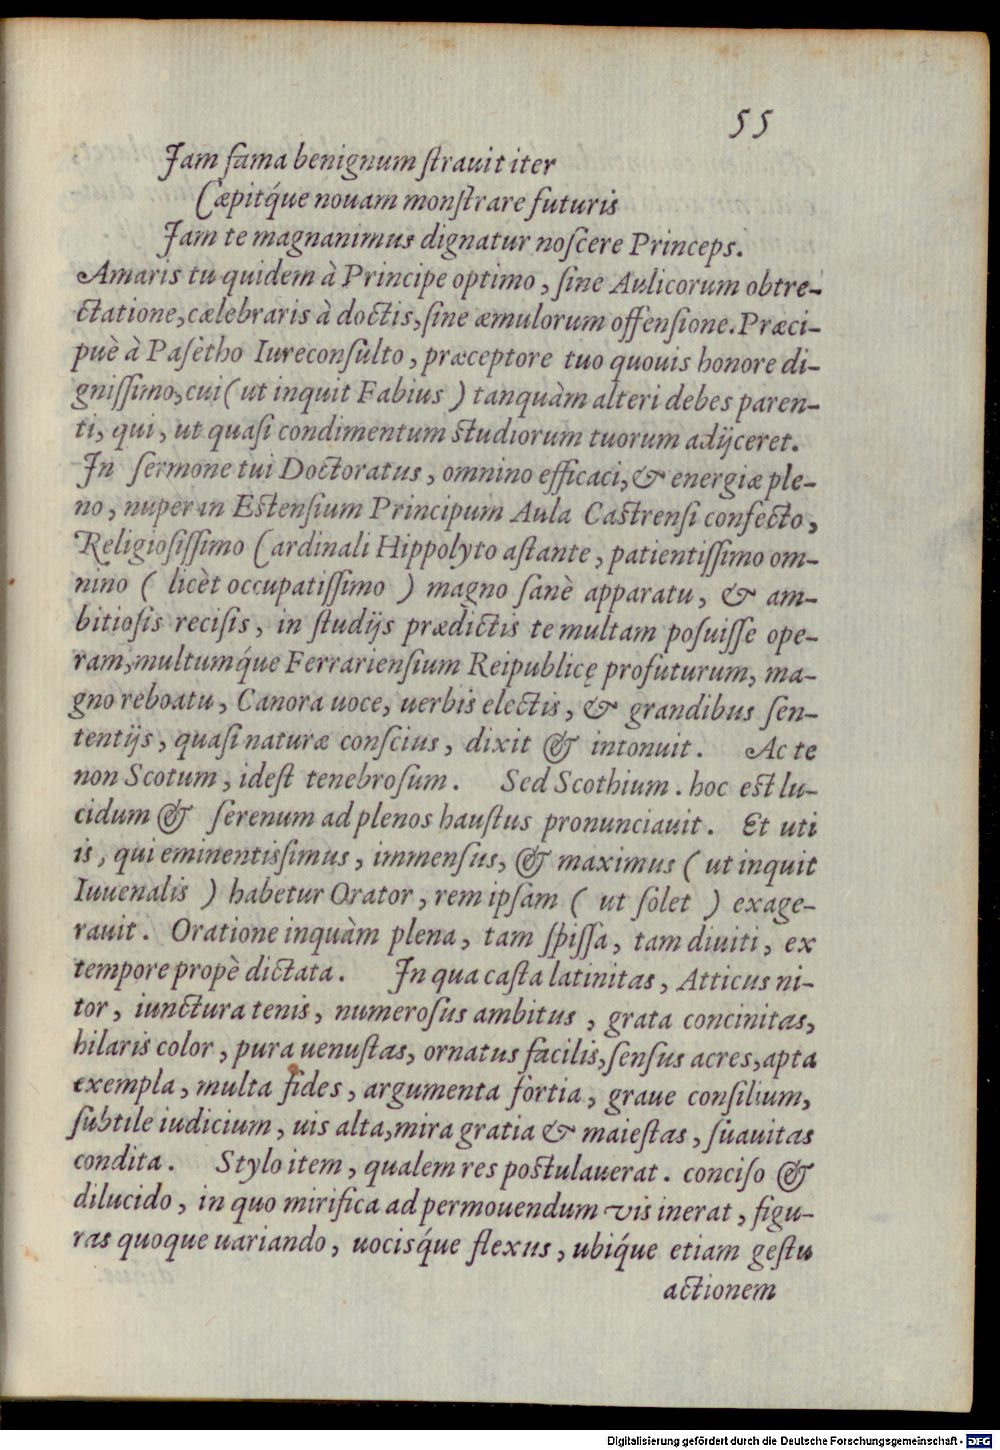 55
Jam fama benignum strauit iter
Cæpitq́ue nouam monstrare futuris
Jam te magnanimus dignatur noscere Princeps.
Amaris tu quidem à Principe optimo, sine Aulicorum obtre-
ctatione, cælebraris à doctis, sine æmulorum offensione. Præci-
puè à Pasètho Iureconsulto, præceptore tuo quouis honore di-
gnissimo, cui ( ut inquit Fabius ) tanquàm alteri debes paren-
ti, qui, ut quasi condimentum studiorum tuorum adijceret.
Jn sermone tui Doctoratus, omnino efficaci, & energiæ ple-
no, nuper in Estensium Principum Aula Castrensi confecto,
Religiosissimo Cardinali Hippolyto astante, patientissimo om-
nino ( licèt occupatissimo ) magno sanè apparatu, & am-
bitiosis recisis, in studijs prædictis te multam posuisse ope-
ram, multumq́ue Ferrariensium Reipublicę profuturum, ma-
gno reboatu, Canora uoce, uerbis electis, & grandibus sen-
tentijs, quasi naturæ conscius, dixit & intonuit. Ac te
non Scotum, idest tenebrosum. Sed Scothium. hoc est lu-
cidum & serenum ad plenos haustus pronunciauit. Et uti
is, qui eminentissimus, immensus, & maximus ( ut inquit
Iuuenalis ) habetur Orator, rem ipsam ( ut solet ) exage-
rauit. Oratione inquàm plena, tam spissa, tam diuiti, ex
tempore propè dictata. Jn qua casta latinitas, Atticus ni-
tor, iunctura tenis, numerosus ambitus, grata concinitas,
hilaris color, pura uenustas, ornatus facilis, sensus acres, apta
exempla, multa fides, argumenta fortia, graue consilium,
subtile iudicium, uis alta, mira gratia & maiestas, suauitas
condita. Stylo item, qualem res postulauerat. conciso &
dilucido, in quo mirifica ad permouendum vis inerat, figu-
ras quoque uariando, uocisq́ue flexus, ubiq́ue etiam gestu
actionem
Digitalisierung gefördert durch die Deutsche Forschungsgemeinschaft - DFG